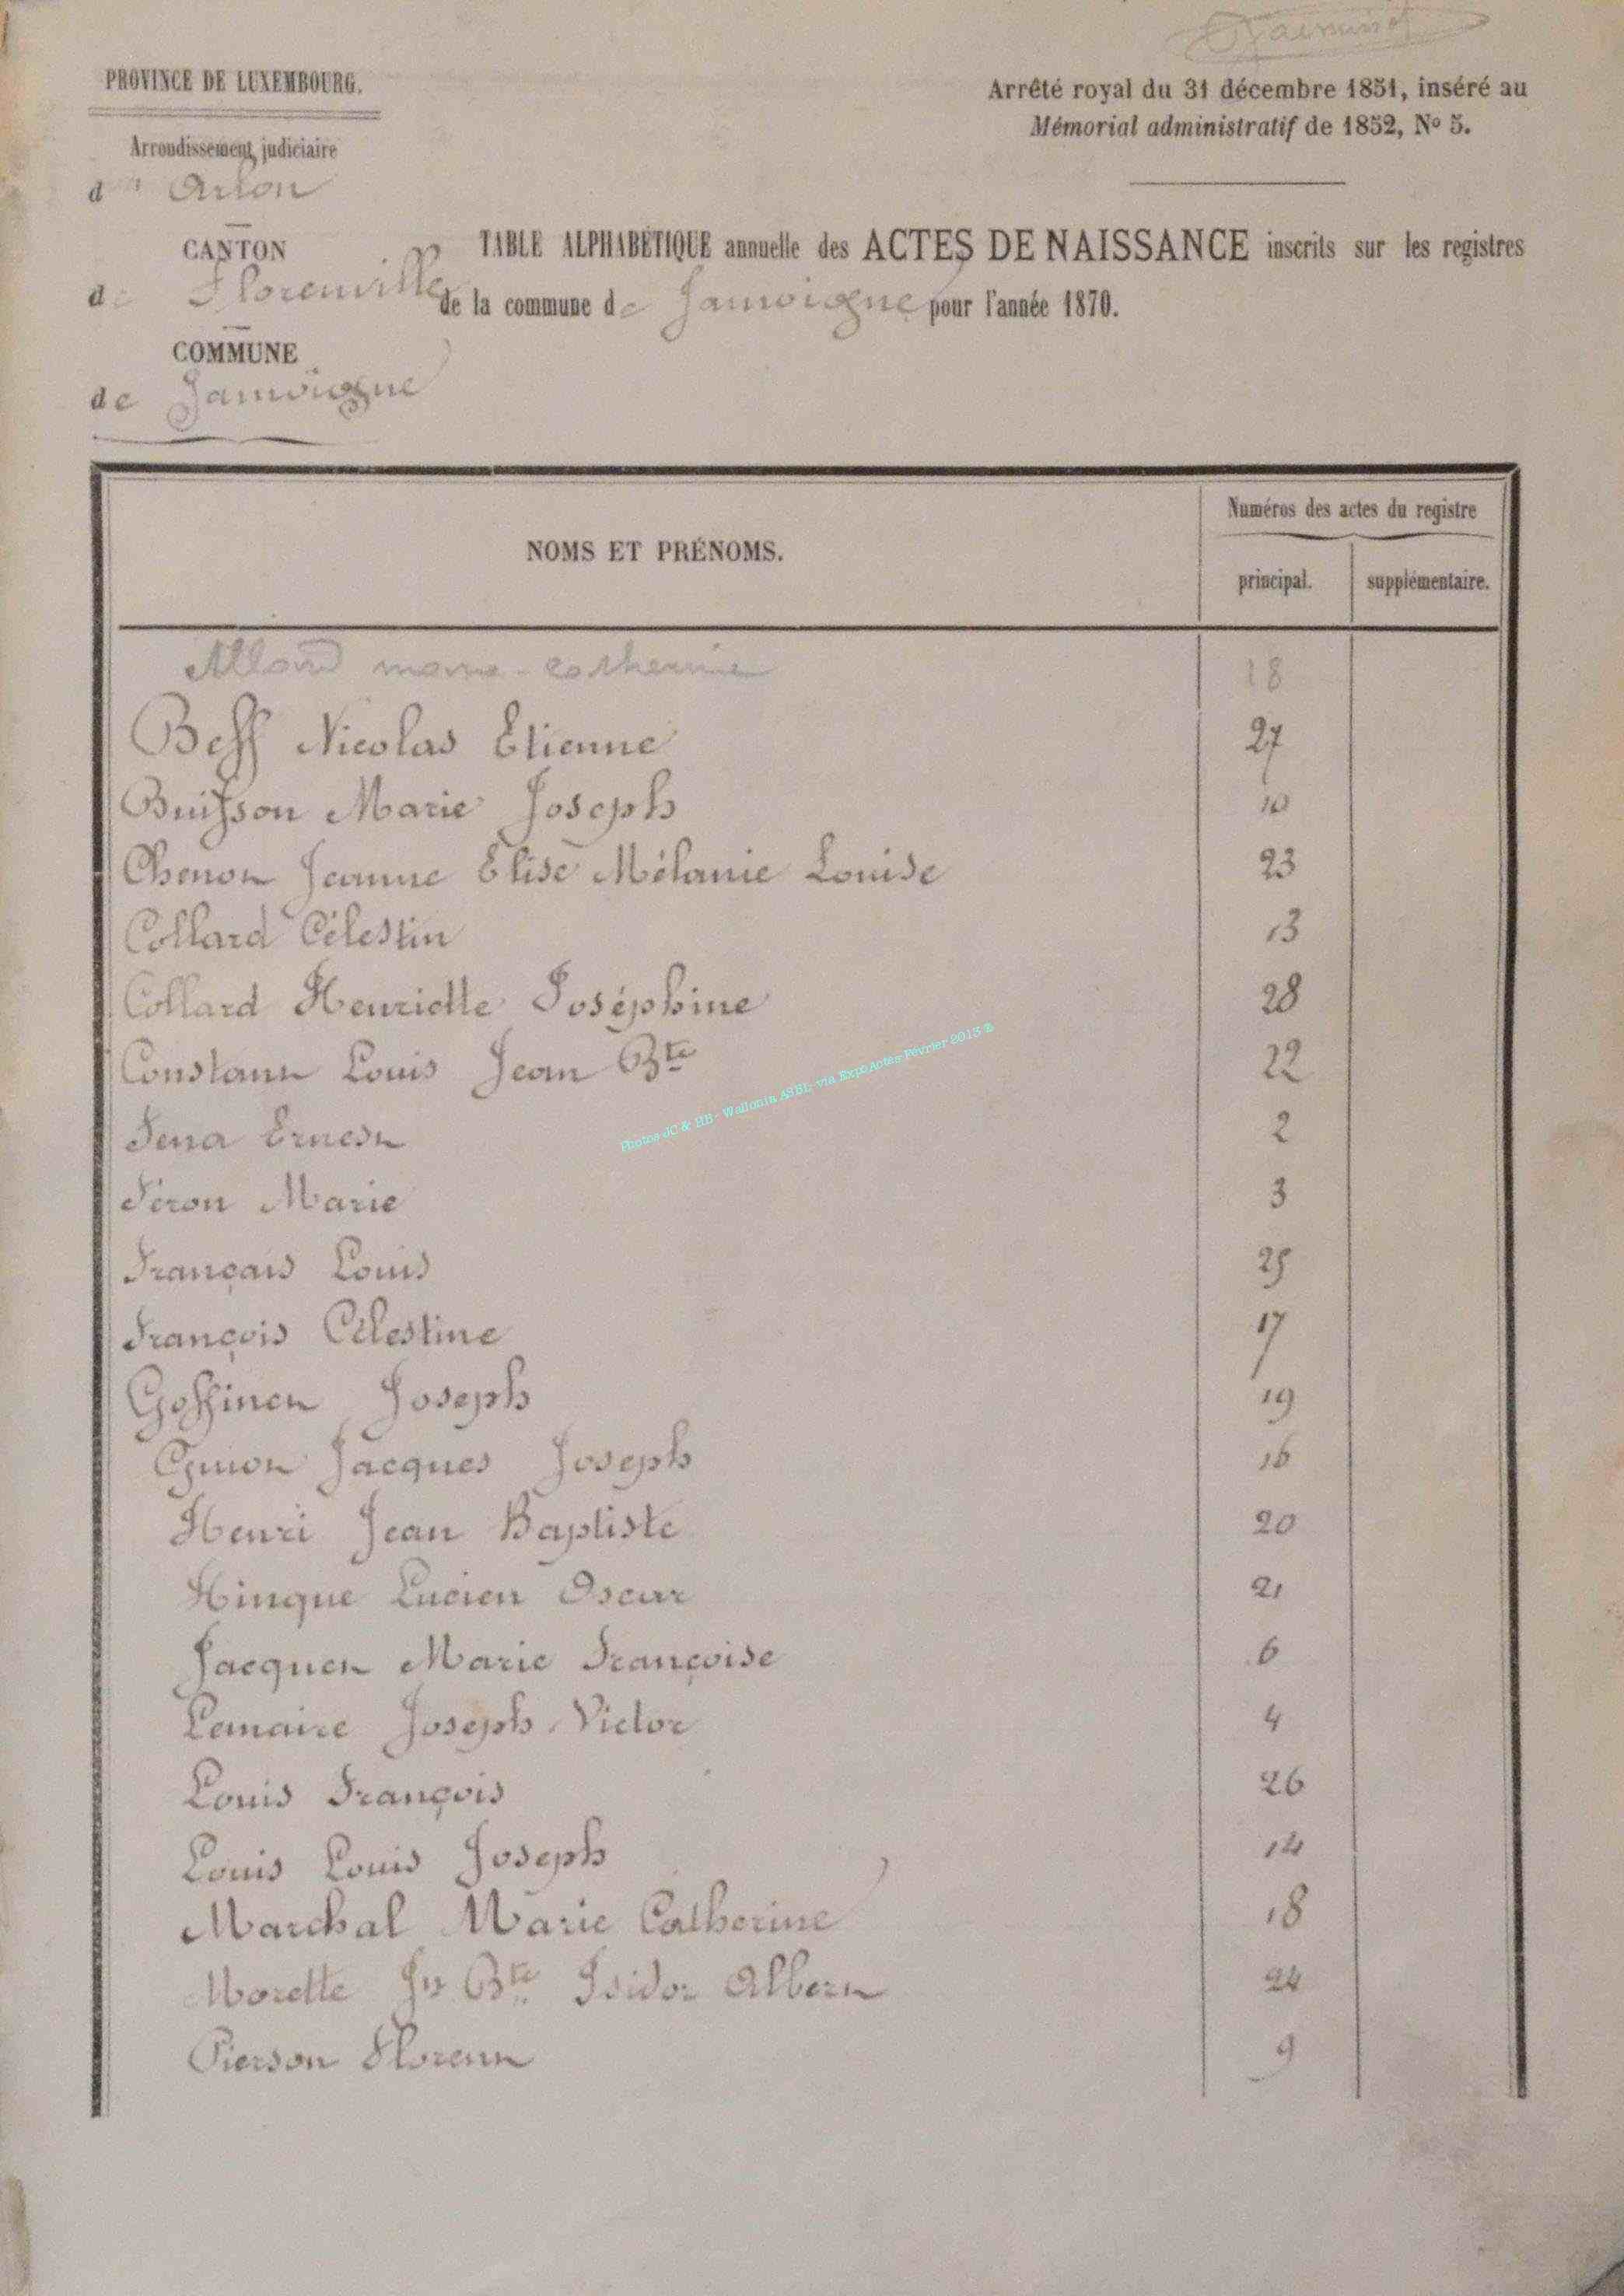 PROVINCE DE LUXEMBOURG.
Arrêté royal du 31 décembre 1851, inséré au
Mémorial administratif de 1852, Nº 5.
Arrondissement judiciaire
d' Arlon
CANTON
de Florenville
COMMUNE
de Jamoigne
TABLE ALPHABÉTIQUE annuelle des ACTES DE NAISSANCE inscrits sur les registres
de la commune de Jamoigne pour l'année 1870.
NOMS ET PRÉNOMS.
Numéros des actes du registre
principal. supplémentaire.
Allard marie-catherine 18
Beff Nicolas Etienne 27
Buisson Marie Joseph 10
Chenot Jeanne Elise Mélanie Louise 23
Collard Célestin 13
Collard Henriette Joséphine 28
Constant Louis Jean Bte 22
Fena Ernest 2
Féron Marie 3
Français Louis 25
François Célestine 17
Goffinet Joseph 19
Guiot Jacques Joseph 16
Henri Jean Baptiste 20
Hinque Lucien Oscar 21
Jacquet Marie Françoise 6
Lemaire Joseph Victor 4
Louis François 26
Louis Louis Joseph 14
Marchal Marie Catherine 18
Morette Jn Bte Isidor Albert 24
Pierson Florent 9
Photos JC & HB - Wallonia ASBL; via ExpoActes Février 2013 ®